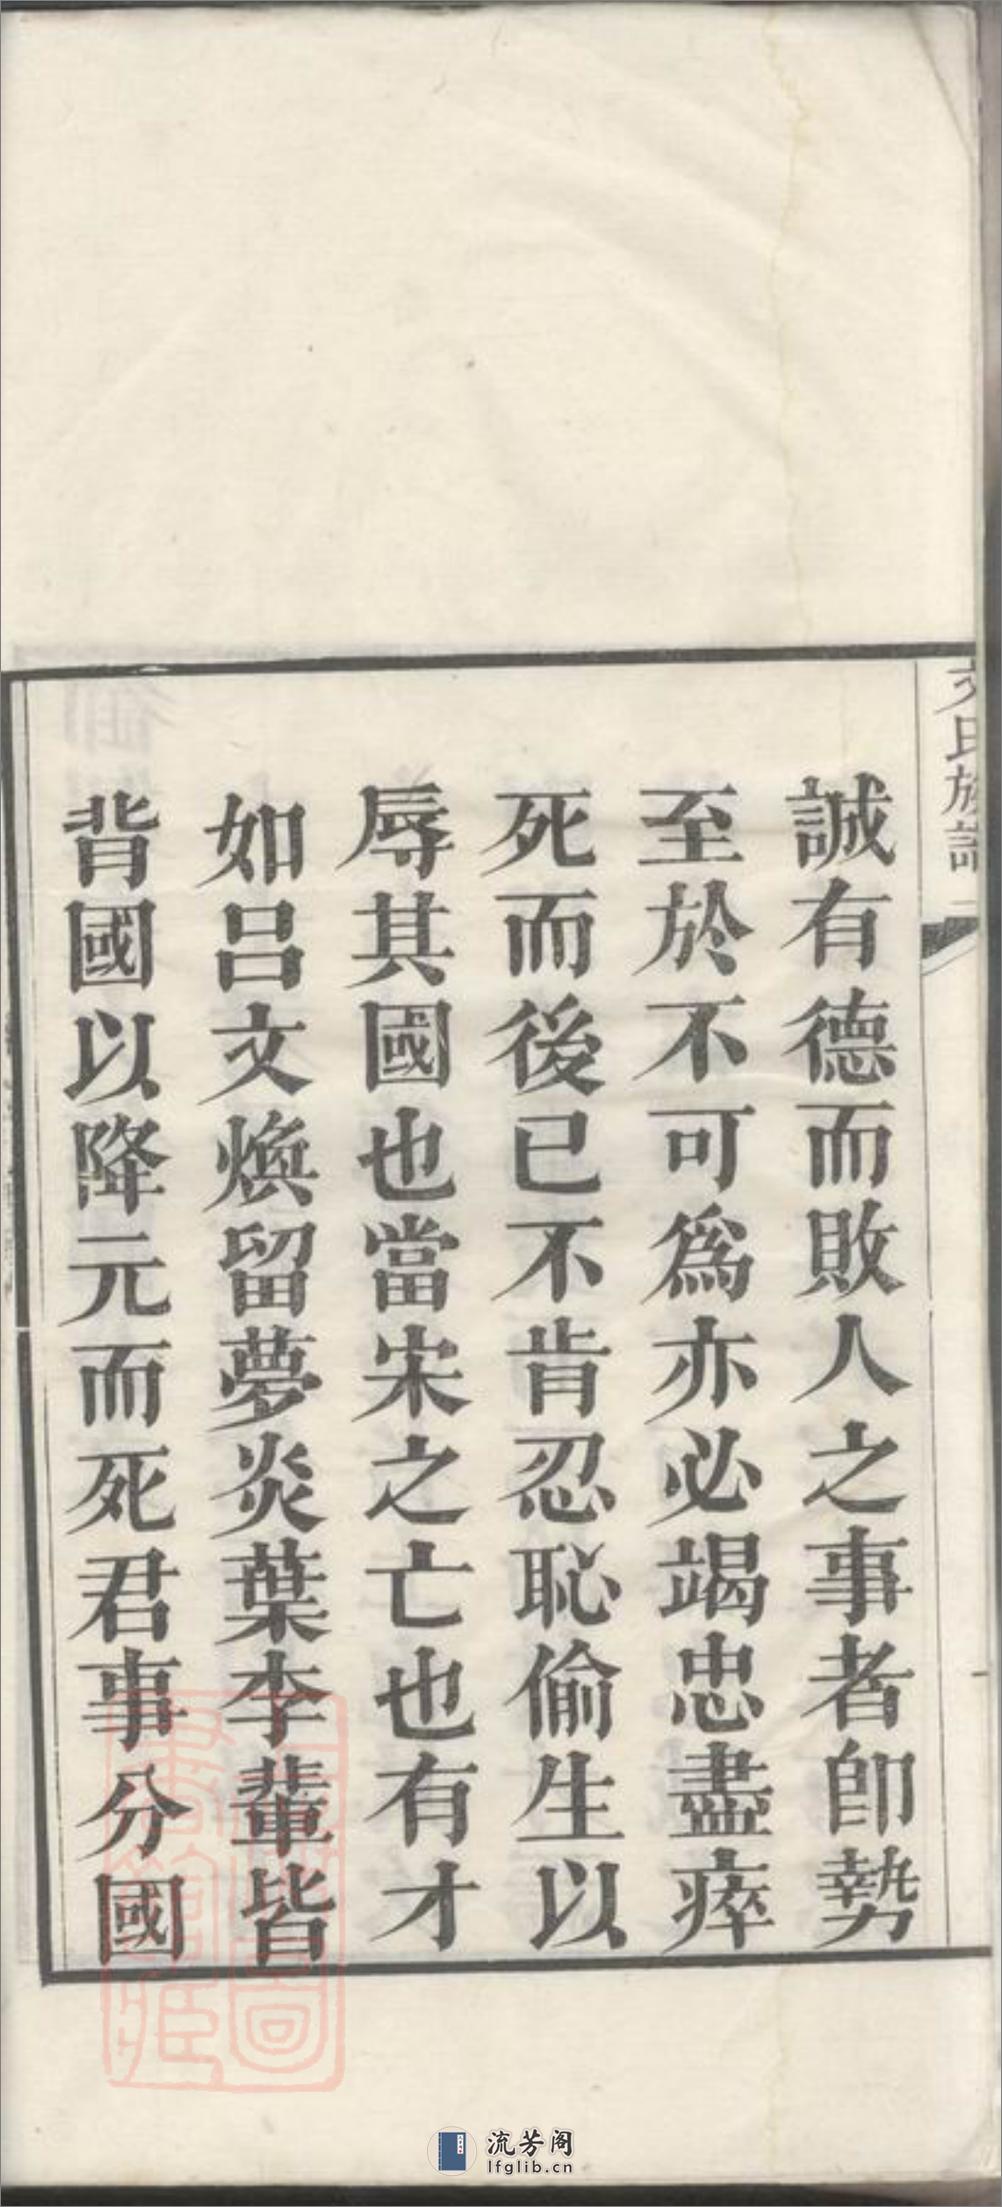 誠有德而敗人之事者卽勢
至於不可爲亦必竭忠盡瘁
死而後已不肯忍恥偷生以
辱其國也當宋之亡也有才
如呂文煥留夢炎葉李輩皆
背國以降元而死君事分國
文氏族譜
流芳阁
lfglib.cn